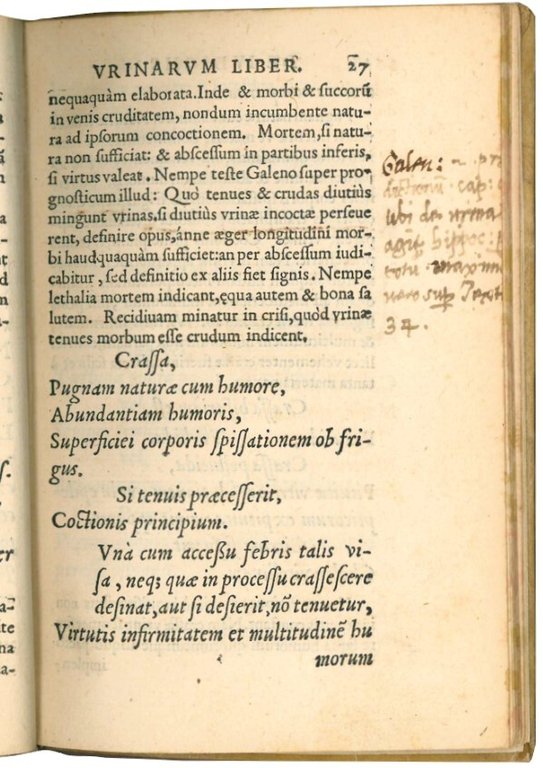 VRINARVM LIBER. 27
nequaquàm elaborata. Inde & morbi & succorũ
in venis cruditatem, nondum incumbente natu-
ra ad ipsorum concoctionem. Mortem, si natu-
ra non sufficiat: & abscessum in partibus inferis,
si virtus valeat. Nempe teste Galeno super pro-
gnosticum illud: Quò tenues & crudas diutiùs
mingunt vrinas, si diutiùs vrinæ incoctæ perseue
rent, definire opus, ánne æger longitudini mor-
bi haudquaquàm sufficiet: an per abscessum iudi-
cabitur, sed definitio ex aliis fiet signis. Nempe
lethalia mortem indicant, ęqua autem & bona sa
lutem. Recidiuam minatur in crisi, quòd vrinæ
tenues morbum esse crudum indicent.
Crassa,
Pugnam naturæ cum humore,
Abundantiam humoris,
Superficiei corporis spissationem ob fri-
gus.
Si tenuis præcesserit,
Coctionis principium.
Vnà cum accessu febris talis vi-
sa, neq; quæ in processu crassescere
desinat, aut si desierit, nõ tenuetur,
Virtutis infirmitatem et multitudinē hu
morum
Galen:
cap:
ubi de urina
maxim
34.